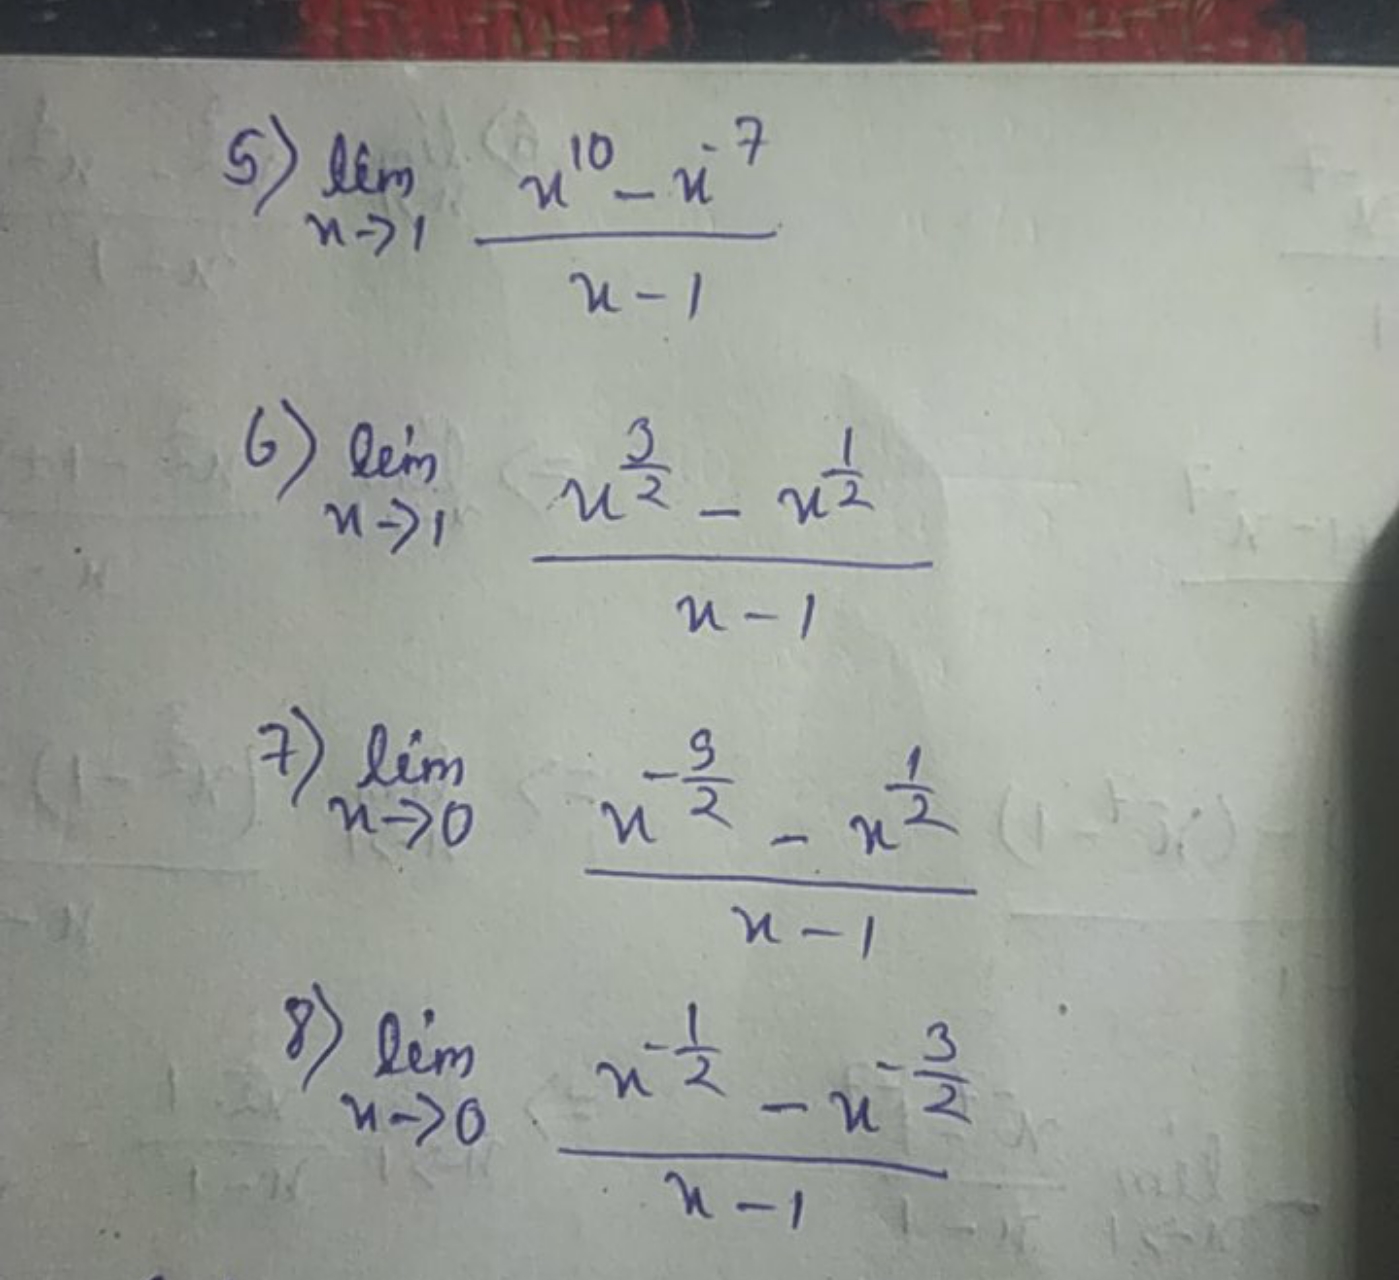 5) lim x→1 (x^10 - x^-7) / (x - 1)
6) lim x→1 (x^(3/2) - x^(1/2)) / (x - 1)
7) lim x→0 (x^(-9/2) - x^(1/2)) / (x - 1)
8) lim x→0 (x^(-1/2) - x^(-3/2)) / (x - 1)